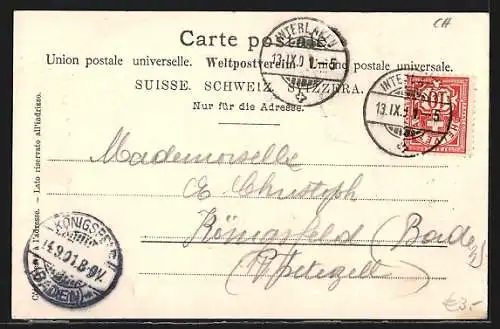 CH
Carte postale.
Union postale universelle. Weltpostverein. Unione postale universale.
SUISSE. SCHWEIZ. SVIZZERA.
Nur für die Adresse.
Côté réservé à l'adresse. — Lato riservato all'indirizzo.
INTERLAKEN
13.IX.01 5
INTERLAKEN
13.IX.01 5
10
HELVETIA
Mademoiselle
E. Christoph
Königsfeld (Baden)
KÖNIGSFELD
14.9.01.8-9V.
(BADEN)
€3.-